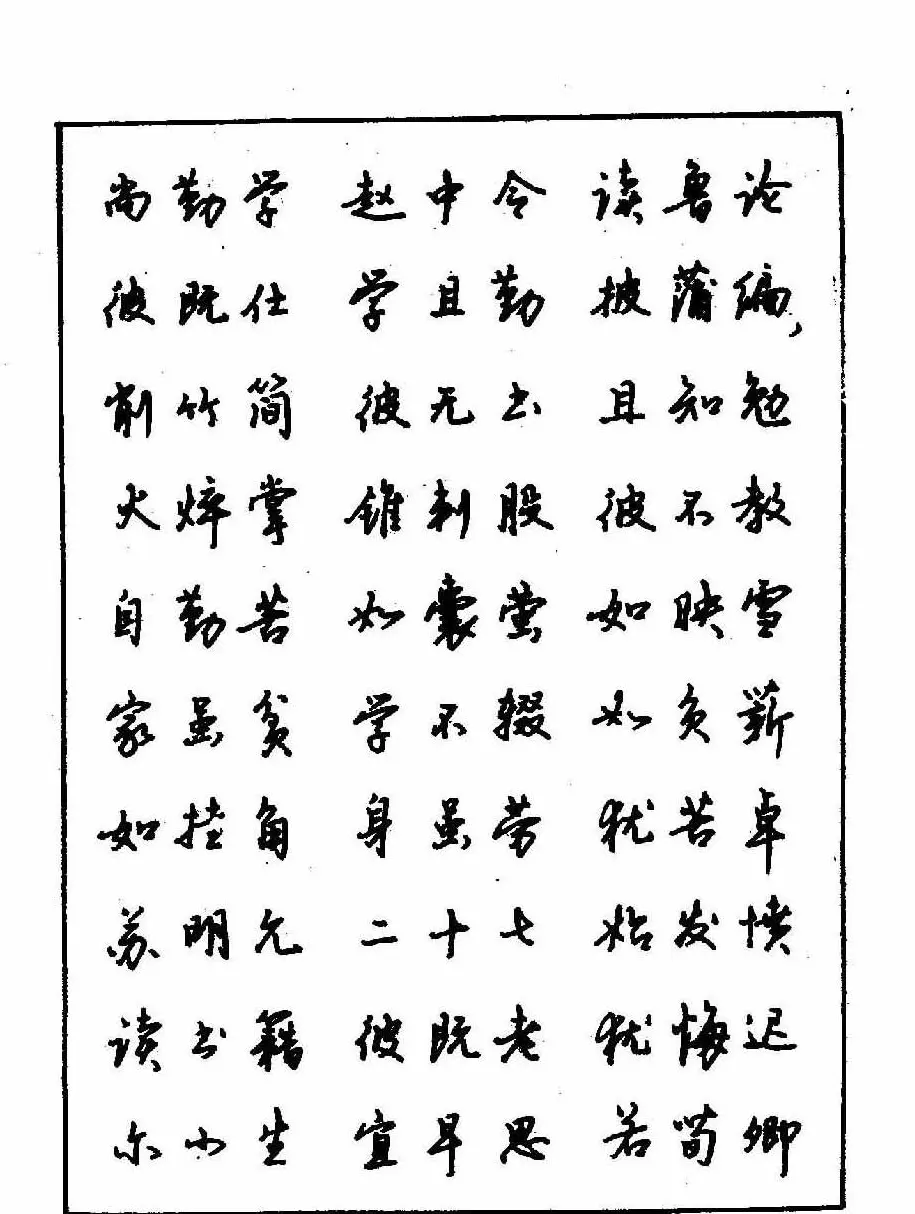 尚勤学 赵中令 读鲁论
彼既仕 学且勤 披蒲编,
削竹简 彼无书 且知勉
火焠掌 锥刺股 彼不教
自勤苦 如囊萤 如映雪
家虽贫 学不辍 如负薪
如挂角 身虽劳 犹苦卓
苏明允 二十七 始发愤
读书籍 彼既老 犹悔迟
尔小生 宜早思 若荀卿